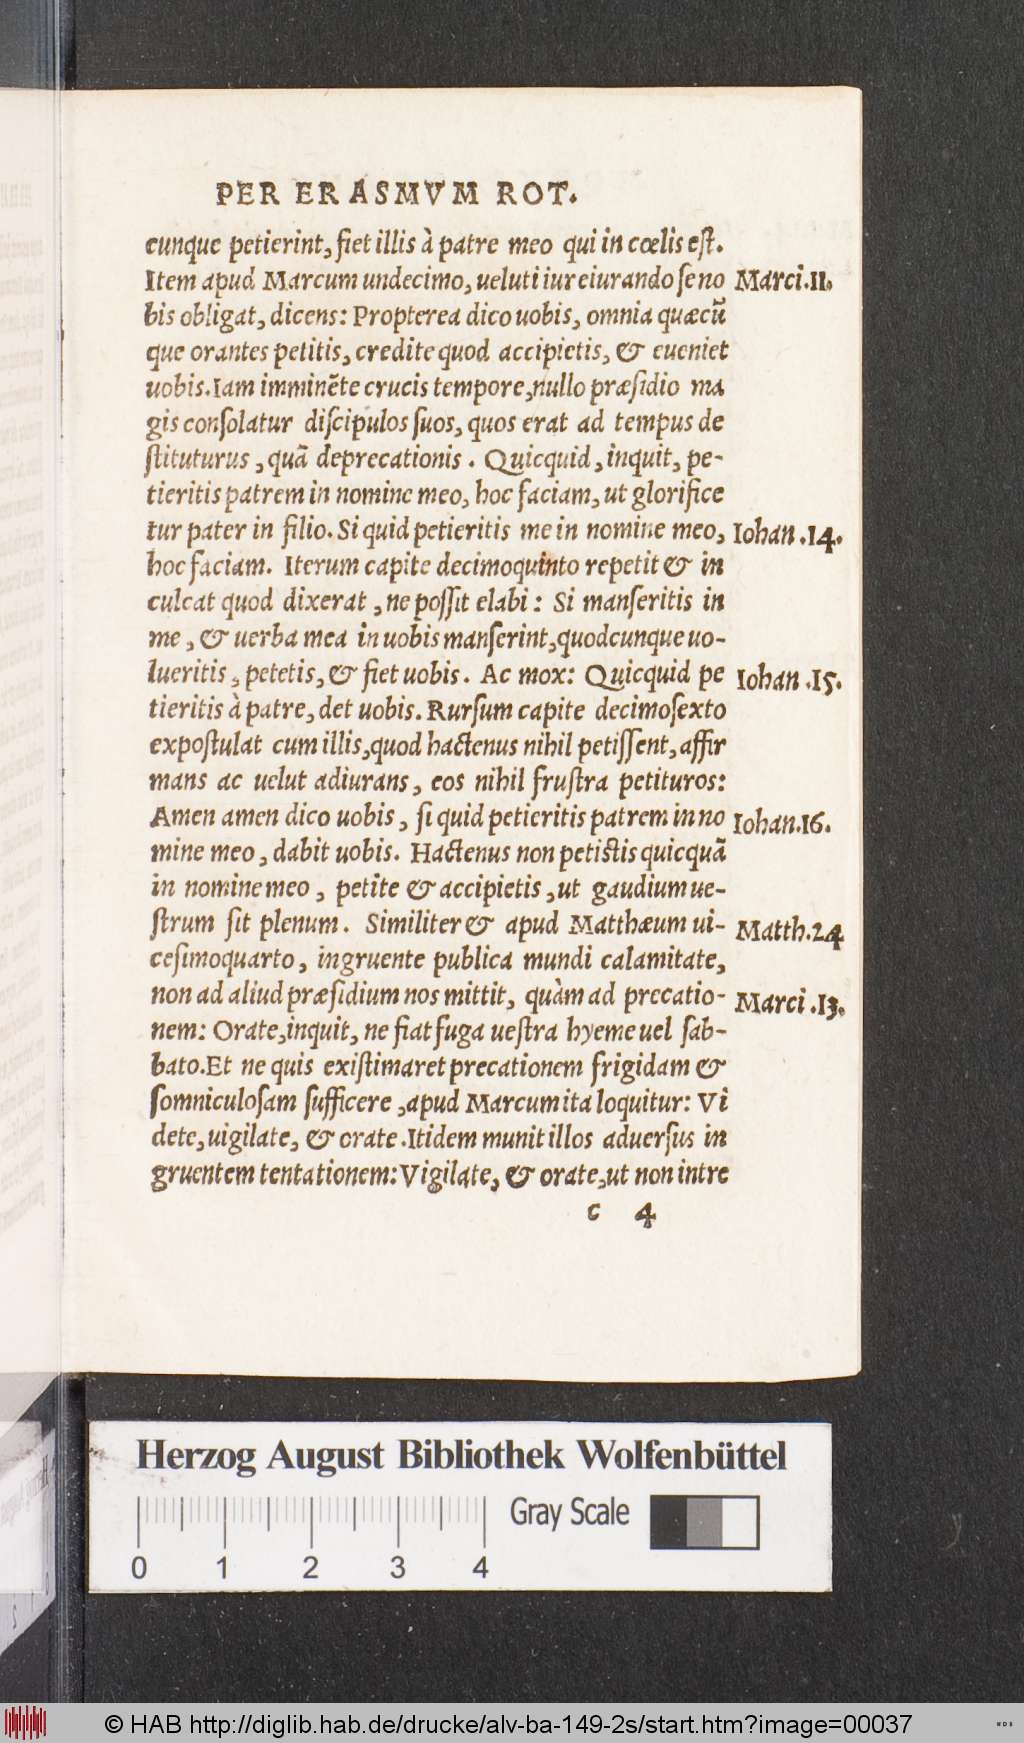 PER ERASMVM ROT.
cunque petierint, fiet illis à patre meo qui in cœlis est.
Item apud Marcum undecimo, ueluti iureiurando se no Marci.11.
bis obligat, dicens: Propterea dico uobis, omnia quæcũ
que orantes petitis, credite quod accipietis, & eueniet
uobis. Iam imminẽte crucis tempore, nullo præsidio ma
gis consolatur discipulos suos, quos erat ad tempus de
stituturus, quã deprecationis. Quicquid, inquit, pe-
tieritis patrem in nomine meo, hoc faciam, ut glorifice
tur pater in filio. Si quid petieritis me in nomine meo, Iohan.14.
hoc faciam. Iterum capite decimoquinto repetit & in
culcat quod dixerat, ne possit elabi: Si manseritis in
me, & uerba mea in uobis manserint, quodcunque uo-
lueritis, petetis, & fiet uobis. Ac mox: Quicquid pe Iohan.15.
tieritis à patre, det uobis. Rursum capite decimosexto
expostulat cum illis, quod hactenus nihil petissent, affir
mans ac uelut adiurans, eos nihil frustra petituros:
Amen amen dico uobis, si quid petieritis patrem in no Iohan.16.
mine meo, dabit uobis. Hactenus non petistis quicquã
in nomine meo, petite & accipietis, ut gaudium ue-
strum sit plenum. Similiter & apud Matthæum ui- Matth.24
cesimoquarto, ingruente publica mundi calamitate,
non ad aliud præsidium nos mittit, quàm ad precatio- Marci.13.
nem: Orate, inquit, ne fiat fuga uestra hyeme uel sab-
bato. Et ne quis existimaret precationem frigidam &
somniculosam sufficere, apud Marcum ita loquitur: Vi
dete, uigilate, & orate. Itidem munit illos aduersus in
gruentem tentationem: Vigilate, & orate, ut non intre
c 4
Herzog August Bibliothek Wolfenbüttel
Gray Scale
0 1 2 3 4
© HAB http://diglib.hab.de/drucke/alv-ba-149-2s/start.htm?image=00037